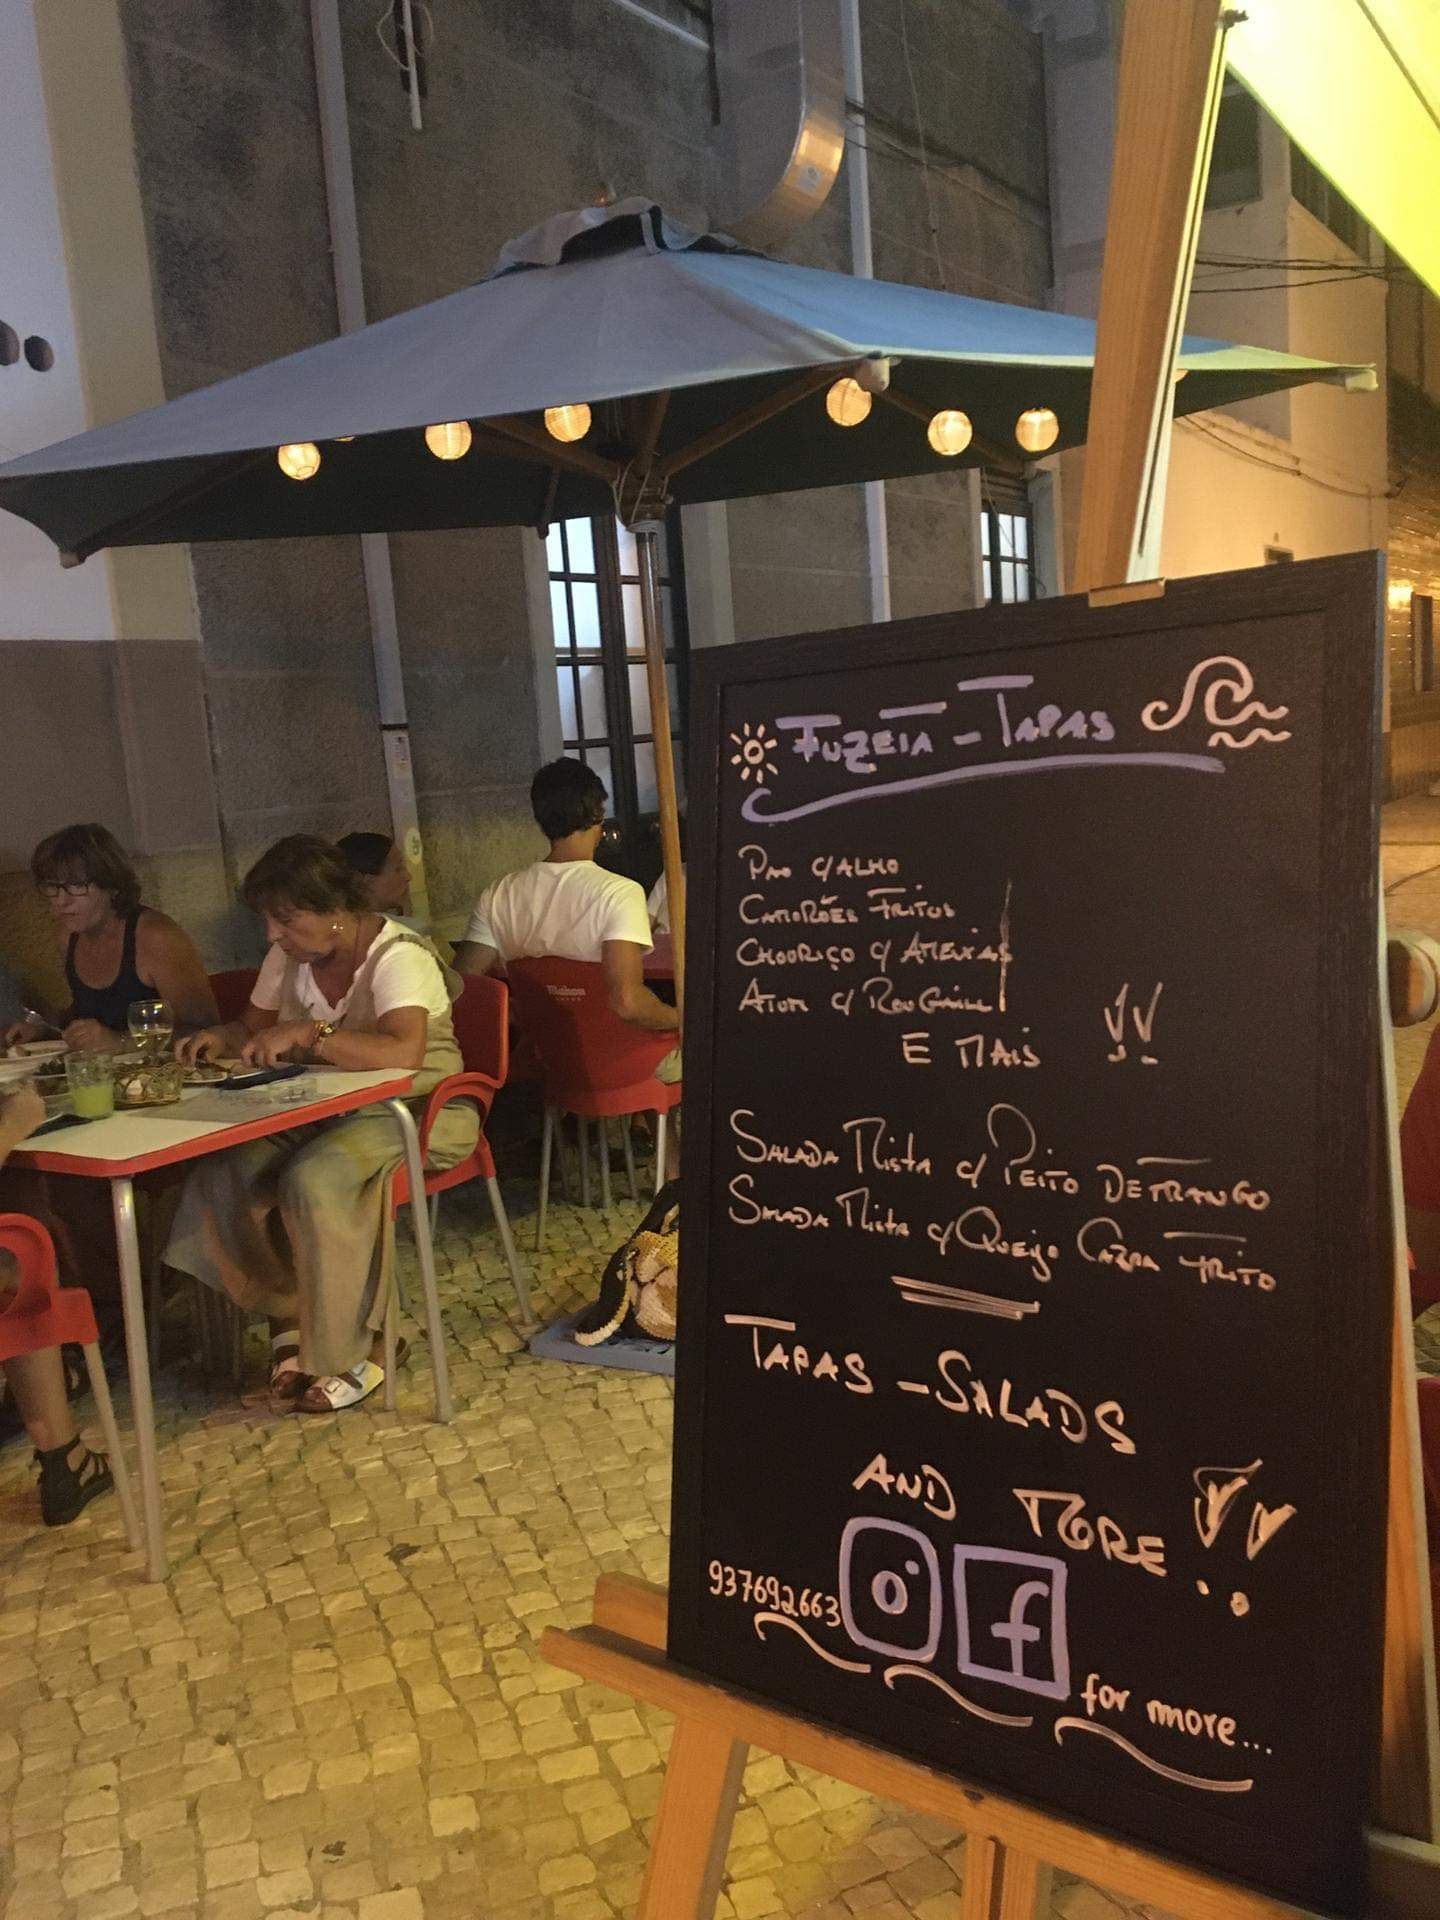 FUZETA - TAPAS
PÃO C/ALHO
CAMARÕES FRITOS
CHOURIÇO C/ AMEIXAS
ATUM C/ ROUGAILL
E MAIS !!
SALADA MISTA C/ PEITO DE FRANGO
SALADA MISTA C/ QUEIJO CABRA FRITO
TAPAS - SALADS
AND MORE !!
937692663
for more...
Mahou